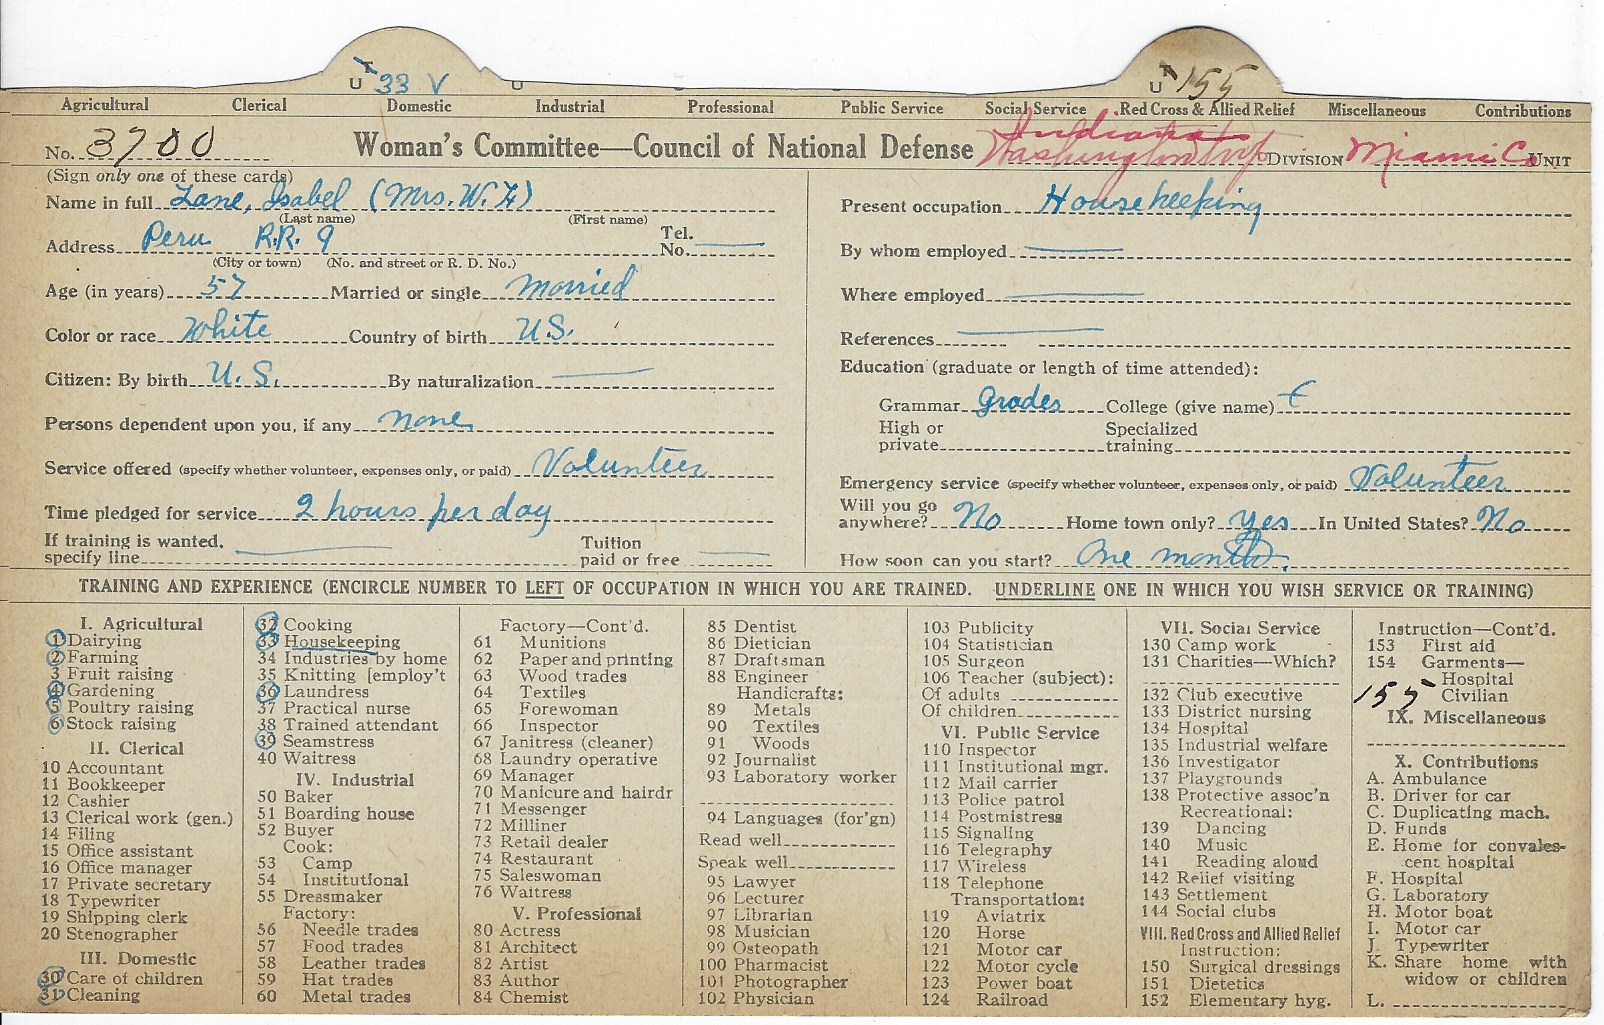 U 33 V U 155
Agricultural Clerical Domestic Industrial Professional Public Service Social Service Red Cross & Allied Relief Miscellaneous Contributions
No. 3700 Woman's Committee—Council of National Defense Indiana
Washington Twp DIVISION Miami Co UNIT
(Sign only one of these cards)
Name in full Lane, Isabel (Mrs. W. H)
(Last name) (First name)
Address Peru R.R. 9 Tel. No.
(City or town) (No. and street or R. D. No.)
Age (in years) 57 Married or single Married
Color or race White Country of birth U.S.
Citizen: By birth U.S. By naturalization
Persons dependent upon you, if any none
Service offered (specify whether volunteer, expenses only, or paid) Volunteer
Time pledged for service 2 hours per day
If training is wanted, Tuition
specify line paid or free
Present occupation Housekeeping
By whom employed
Where employed
References
Education (graduate or length of time attended):
Grammar grades College (give name)
High or Specialized
private training
Emergency service (specify whether volunteer, expenses only, or paid) Volunteer
Will you go
anywhere? No Home town only? Yes In United States? No
How soon can you start? One month.
TRAINING AND EXPERIENCE (ENCIRCLE NUMBER TO LEFT OF OCCUPATION IN WHICH YOU ARE TRAINED. UNDERLINE ONE IN WHICH YOU WISH SERVICE OR TRAINING)
I. Agricultural
1 Dairying
2 Farming
3 Fruit raising
4 Gardening
5 Poultry raising
6 Stock raising
II. Clerical
10 Accountant
11 Bookkeeper
12 Cashier
13 Clerical work (gen.)
14 Filing
15 Office assistant
16 Office manager
17 Private secretary
18 Typewriter
19 Shipping clerk
20 Stenographer
III. Domestic
30 Care of children
31 Cleaning
32 Cooking
33 Housekeeping
34 Industries by home
35 Knitting [employ't
36 Laundress
37 Practical nurse
38 Trained attendant
39 Seamstress
40 Waitress
IV. Industrial
50 Baker
51 Boarding house
52 Buyer
Cook:
53 Camp
54 Institutional
55 Dressmaker
Factory:
56 Needle trades
57 Food trades
58 Leather trades
59 Hat trades
60 Metal trades
Factory—Cont'd.
61 Munitions
62 Paper and printing
63 Wood trades
64 Textiles
65 Forewoman
66 Inspector
67 Janitress (cleaner)
68 Laundry operative
69 Manager
70 Manicure and hairdr
71 Messenger
72 Milliner
73 Retail dealer
74 Restaurant
75 Saleswoman
76 Waitress
V. Professional
80 Actress
81 Architect
82 Artist
83 Author
84 Chemist
85 Dentist
86 Dietician
87 Draftsman
88 Engineer
Handicrafts:
89 Metals
90 Textiles
91 Woods
92 Journalist
93 Laboratory worker
94 Languages (for'gn)
Read well
Speak well
95 Lawyer
96 Lecturer
97 Librarian
98 Musician
99 Osteopath
100 Pharmacist
101 Photographer
102 Physician
103 Publicity
104 Statistician
105 Surgeon
106 Teacher (subject):
Of adults
Of children
VI. Public Service
110 Inspector
111 Institutional mgr.
112 Mail carrier
113 Police patrol
114 Postmistress
115 Signaling
116 Telegraphy
117 Wireless
118 Telephone
Transportation:
119 Aviatrix
120 Horse
121 Motor car
122 Motor cycle
123 Power boat
124 Railroad
VII. Social Service
130 Camp work
131 Charities—Which?
132 Club executive
133 District nursing
134 Hospital
135 Industrial welfare
136 Investigator
137 Playgrounds
138 Protective assoc'n
Recreational:
139 Dancing
140 Music
141 Reading aloud
142 Relief visiting
143 Settlement
144 Social clubs
VIII. Red Cross and Allied Relief
Instruction:
150 Surgical dressings
151 Dietetics
152 Elementary hyg.
Instruction—Cont'd.
153 First aid
154 Garments—
Hospital
155 Civilian
IX. Miscellaneous
X. Contributions
A. Ambulance
B. Driver for car
C. Duplicating mach.
D. Funds
E. Home for convales-
cent hospital
F. Hospital
G. Laboratory
H. Motor boat
I. Motor car
J. Typewriter
K. Share home with
widow or children
L.